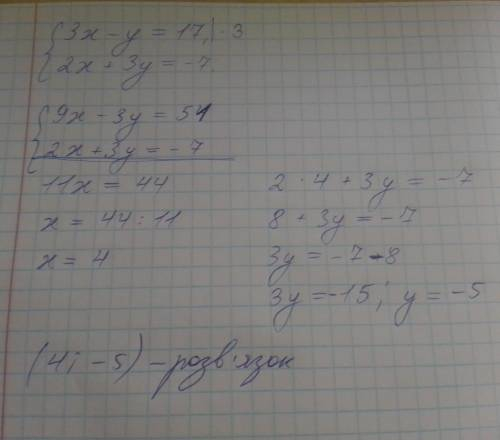 {3x - y = 17, | · 3
{2x + 3y = -7.
{9x - 3y = 51
{2x + 3y = -7
11x = 44
x = 44 : 11
x = 4
2 · 4 + 3y = -7
8 + 3y = -7
3y = -7 - 8
3y = -15; y = -5
(4; -5) - розв'язок